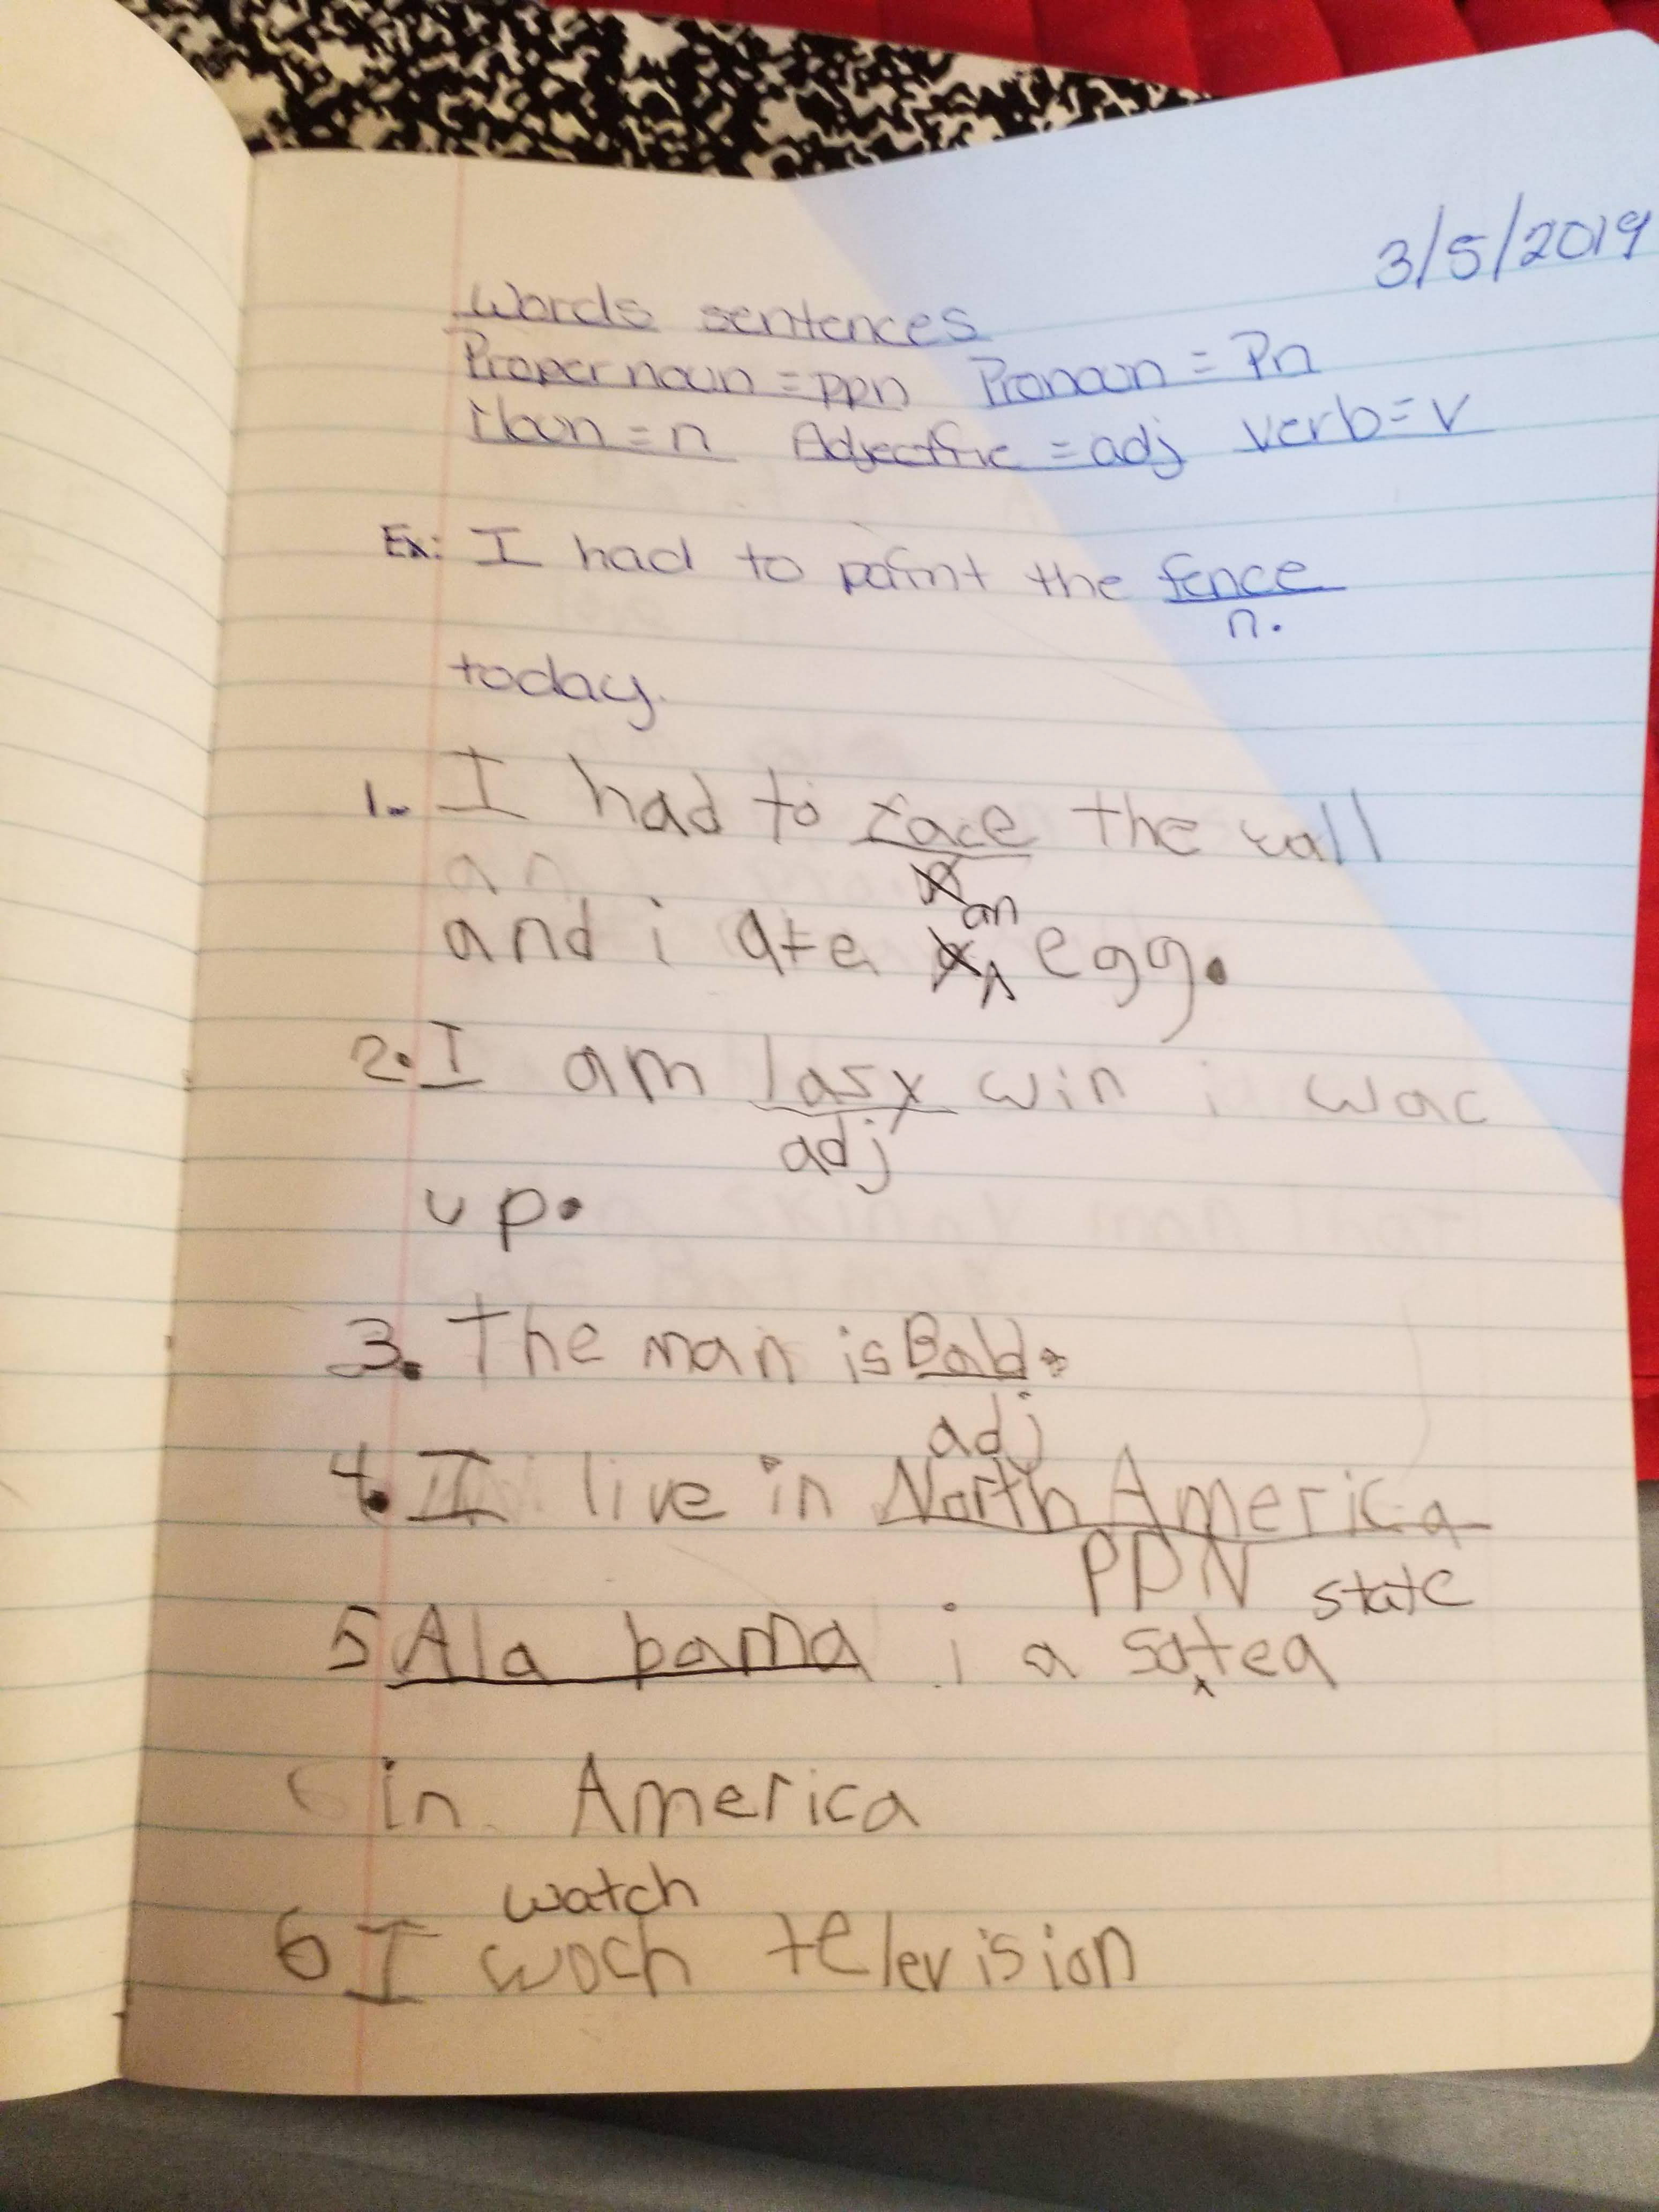 3/5/2019
Words sentences
Proper noun = ppn Pronoun = Pn
Noun = n Adjective = adj verb = v
Ex: I had to paint the fence
n.
today.
1. I had to face the wall
an
and i ate a egg.
2. I am lasy win i wac
adj
up.
3. The man is Bald.
adj
4. I live in North America
PPN state
5 Ala bama i a satea
in America
watch
6 I woch television